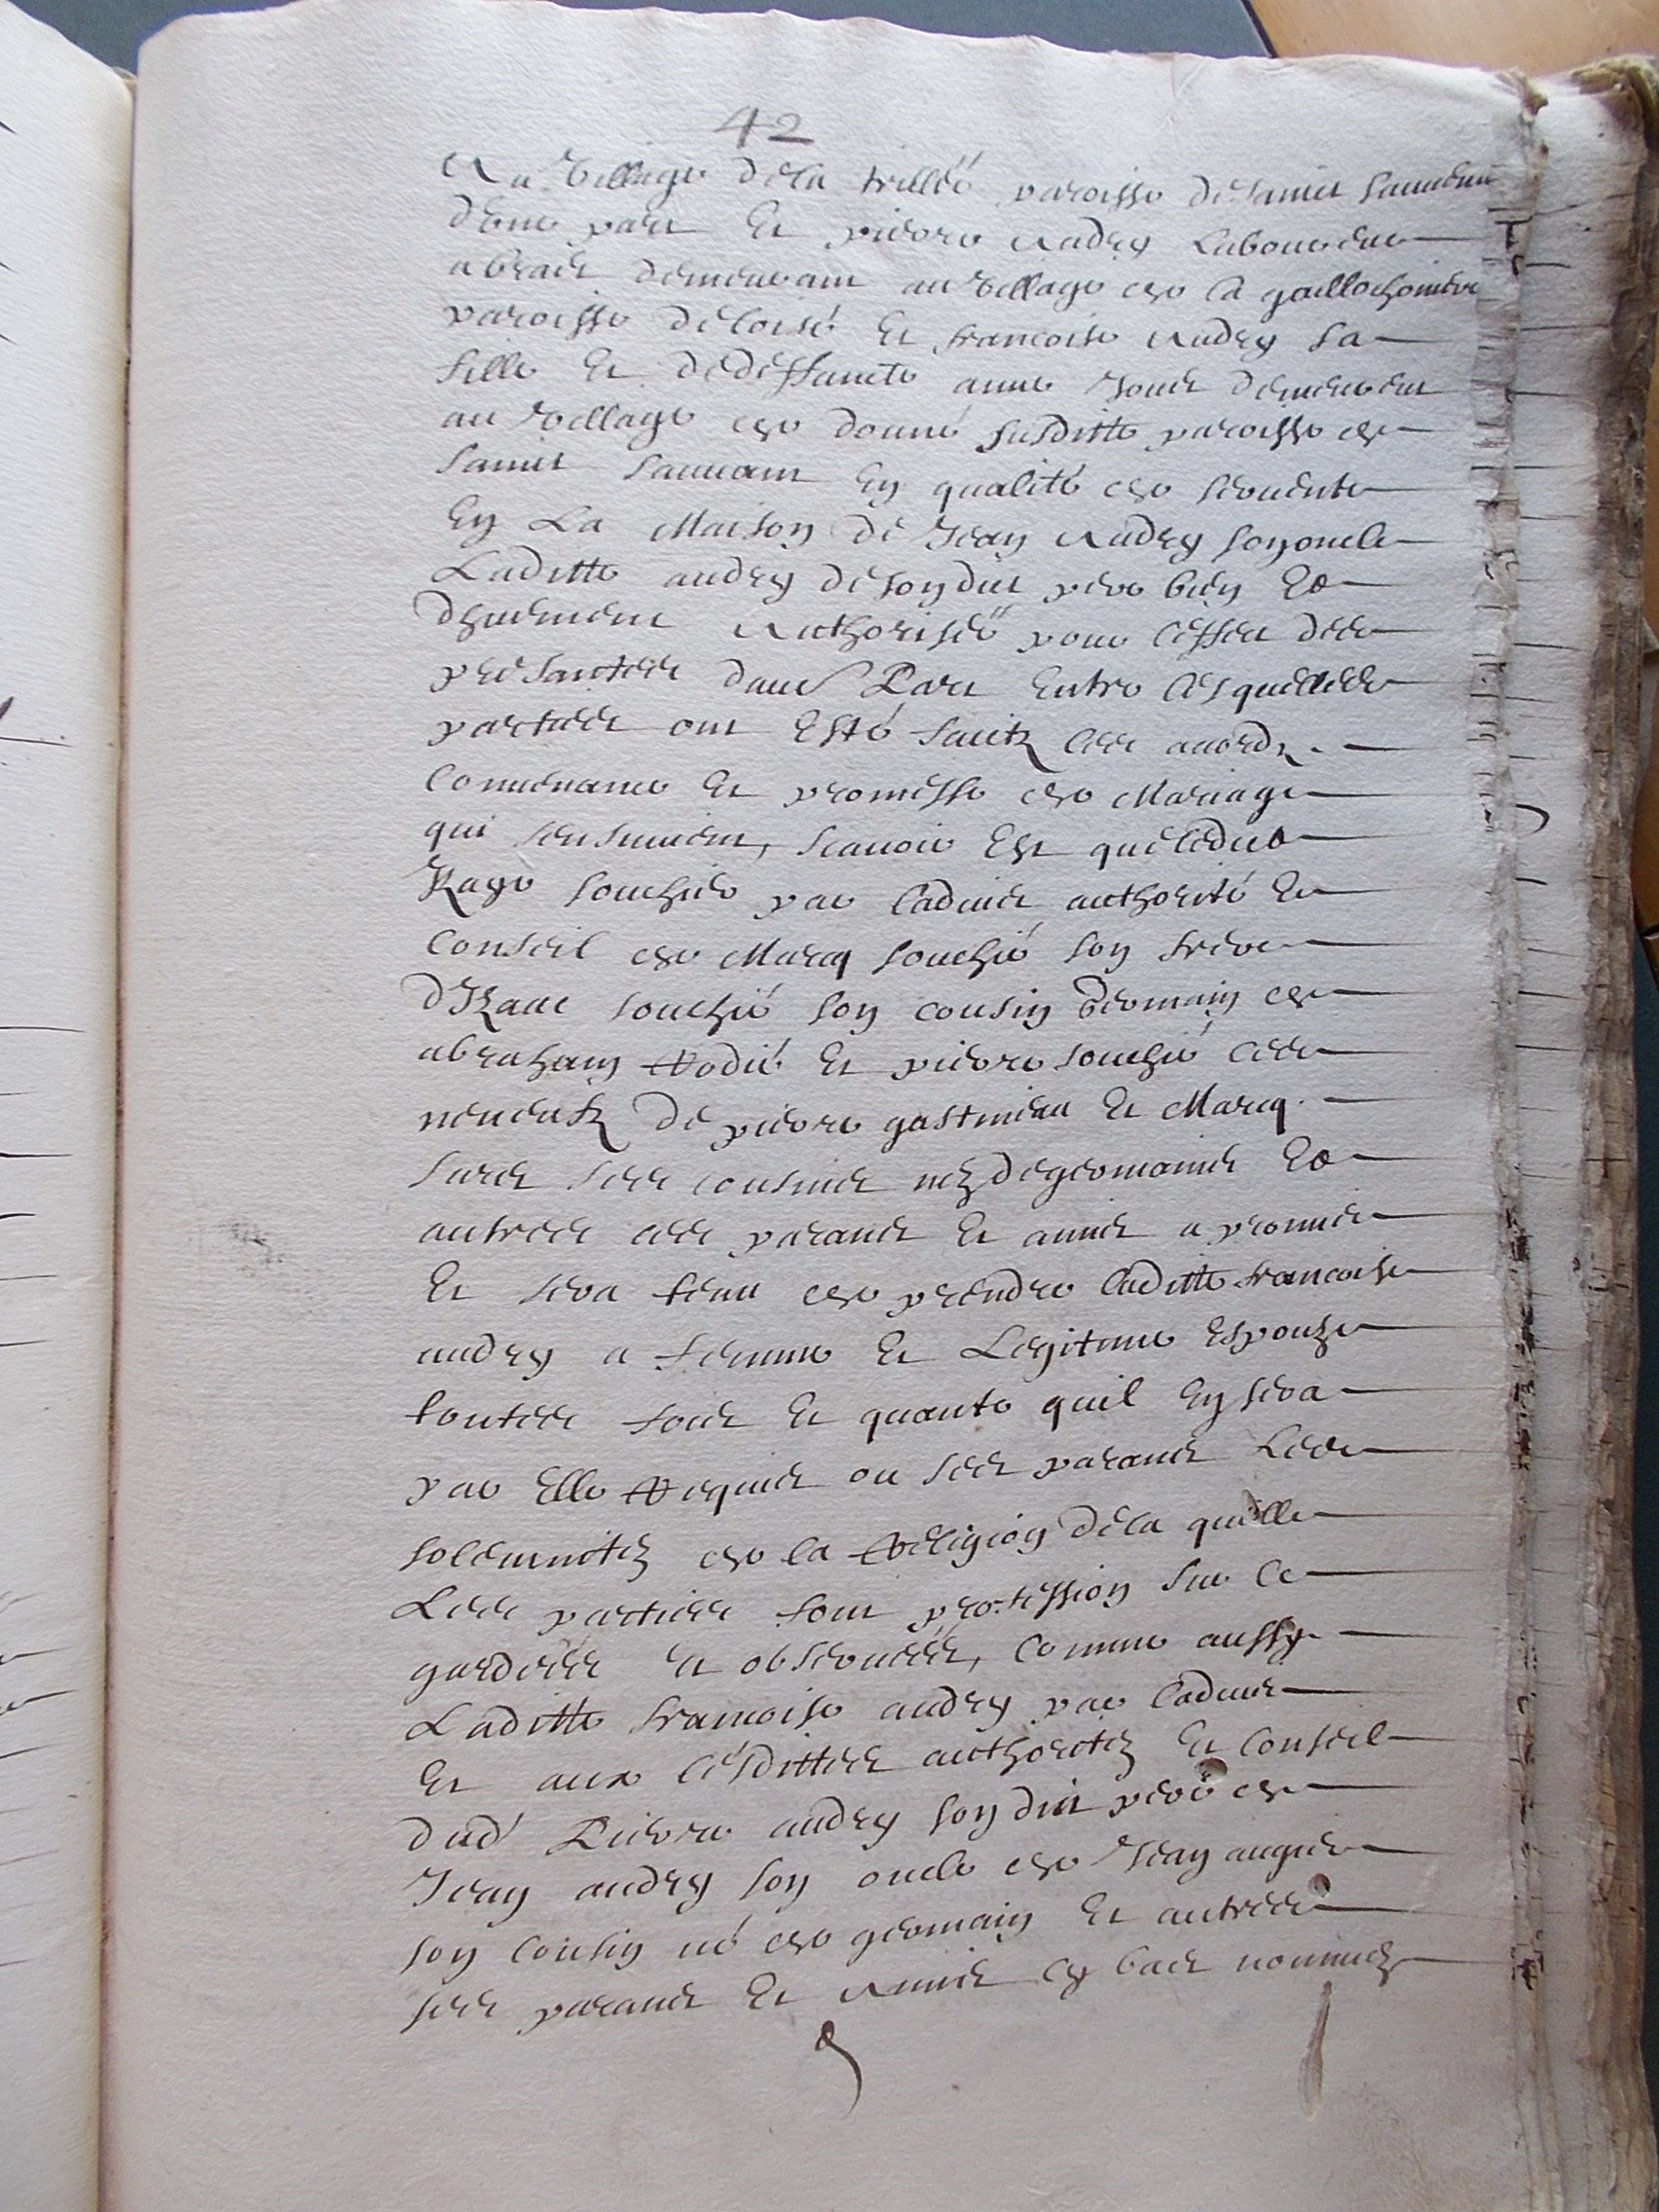 42
Au village de la trillée paroisse de Saint Sauvent
dune part Et pierre Audry Laboureur
a bras demeurant au village de la
paroisse de Et francoise Audry sa
fille Et de deffuncte anne demeurant
au village de susditte paroisse de
Saint Sauvant En qualité de servente
En La Maison de Jean Audry son oncle
Laditte audry de son dit pere bien Et
dhuement Authorisée pour leffect des
presantes dautre Part Entre lesquelles
parties ont Esté faicts les acords
Convenance Et promesse de Mariage
qui sensuivent, scavoir Est que ledit
Souché par ladvis authorité Et
Conseil de Marcq Souché son frere
dIzaac Souché son cousin Germain de
abraham Rodié Et pierre Souché ses
nepveuz de pierre gastineau Et Marcq
ses cousins nez de germains Et
autres ses parans Et amis a promis
Et sera tenu de prendre laditte francoise
audry a femme Et Legitime Espouze
toutes fois Et quante quil En sera
par Elle Requis ou ses parans Les
solemnitez de la Religion de la quelle
Les parties font profession sur ce
gardées Et observées, Comme aussy
Laditte francoise audry par ladvis
Et aux lesdittes authoritez Et Conseil
dud Pierre audry son dit pere de
Jean audry son oncle de Jean augier
son cousin né de germain Et autres
ses parans Et Amis cy bas nommez